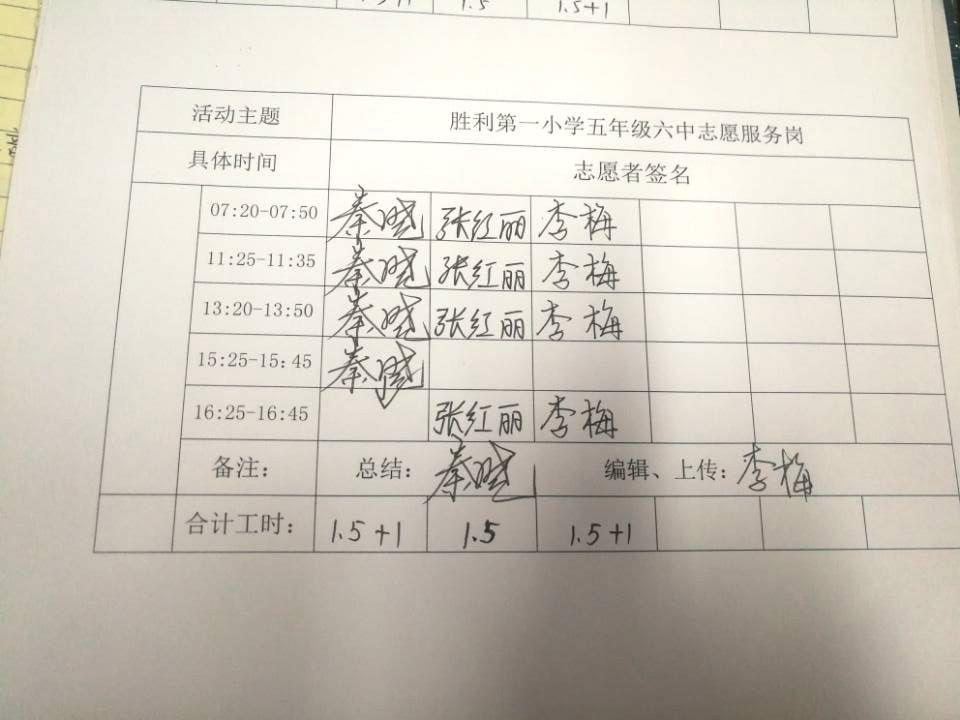 1.5
1.5+1
活动主题 胜利第一小学五年级六中志愿服务岗
具体时间 志愿者签名
07:20-07:50 秦晓 张红丽 李梅
11:25-11:35 秦晓 张红丽 李梅
13:20-13:50 秦晓 张红丽 李梅
15:25-15:45 秦晓
16:25-16:45 张红丽 李梅
备注: 总结: 秦晓 编辑、上传: 李梅
合计工时: 1.5+1 1.5 1.5+1